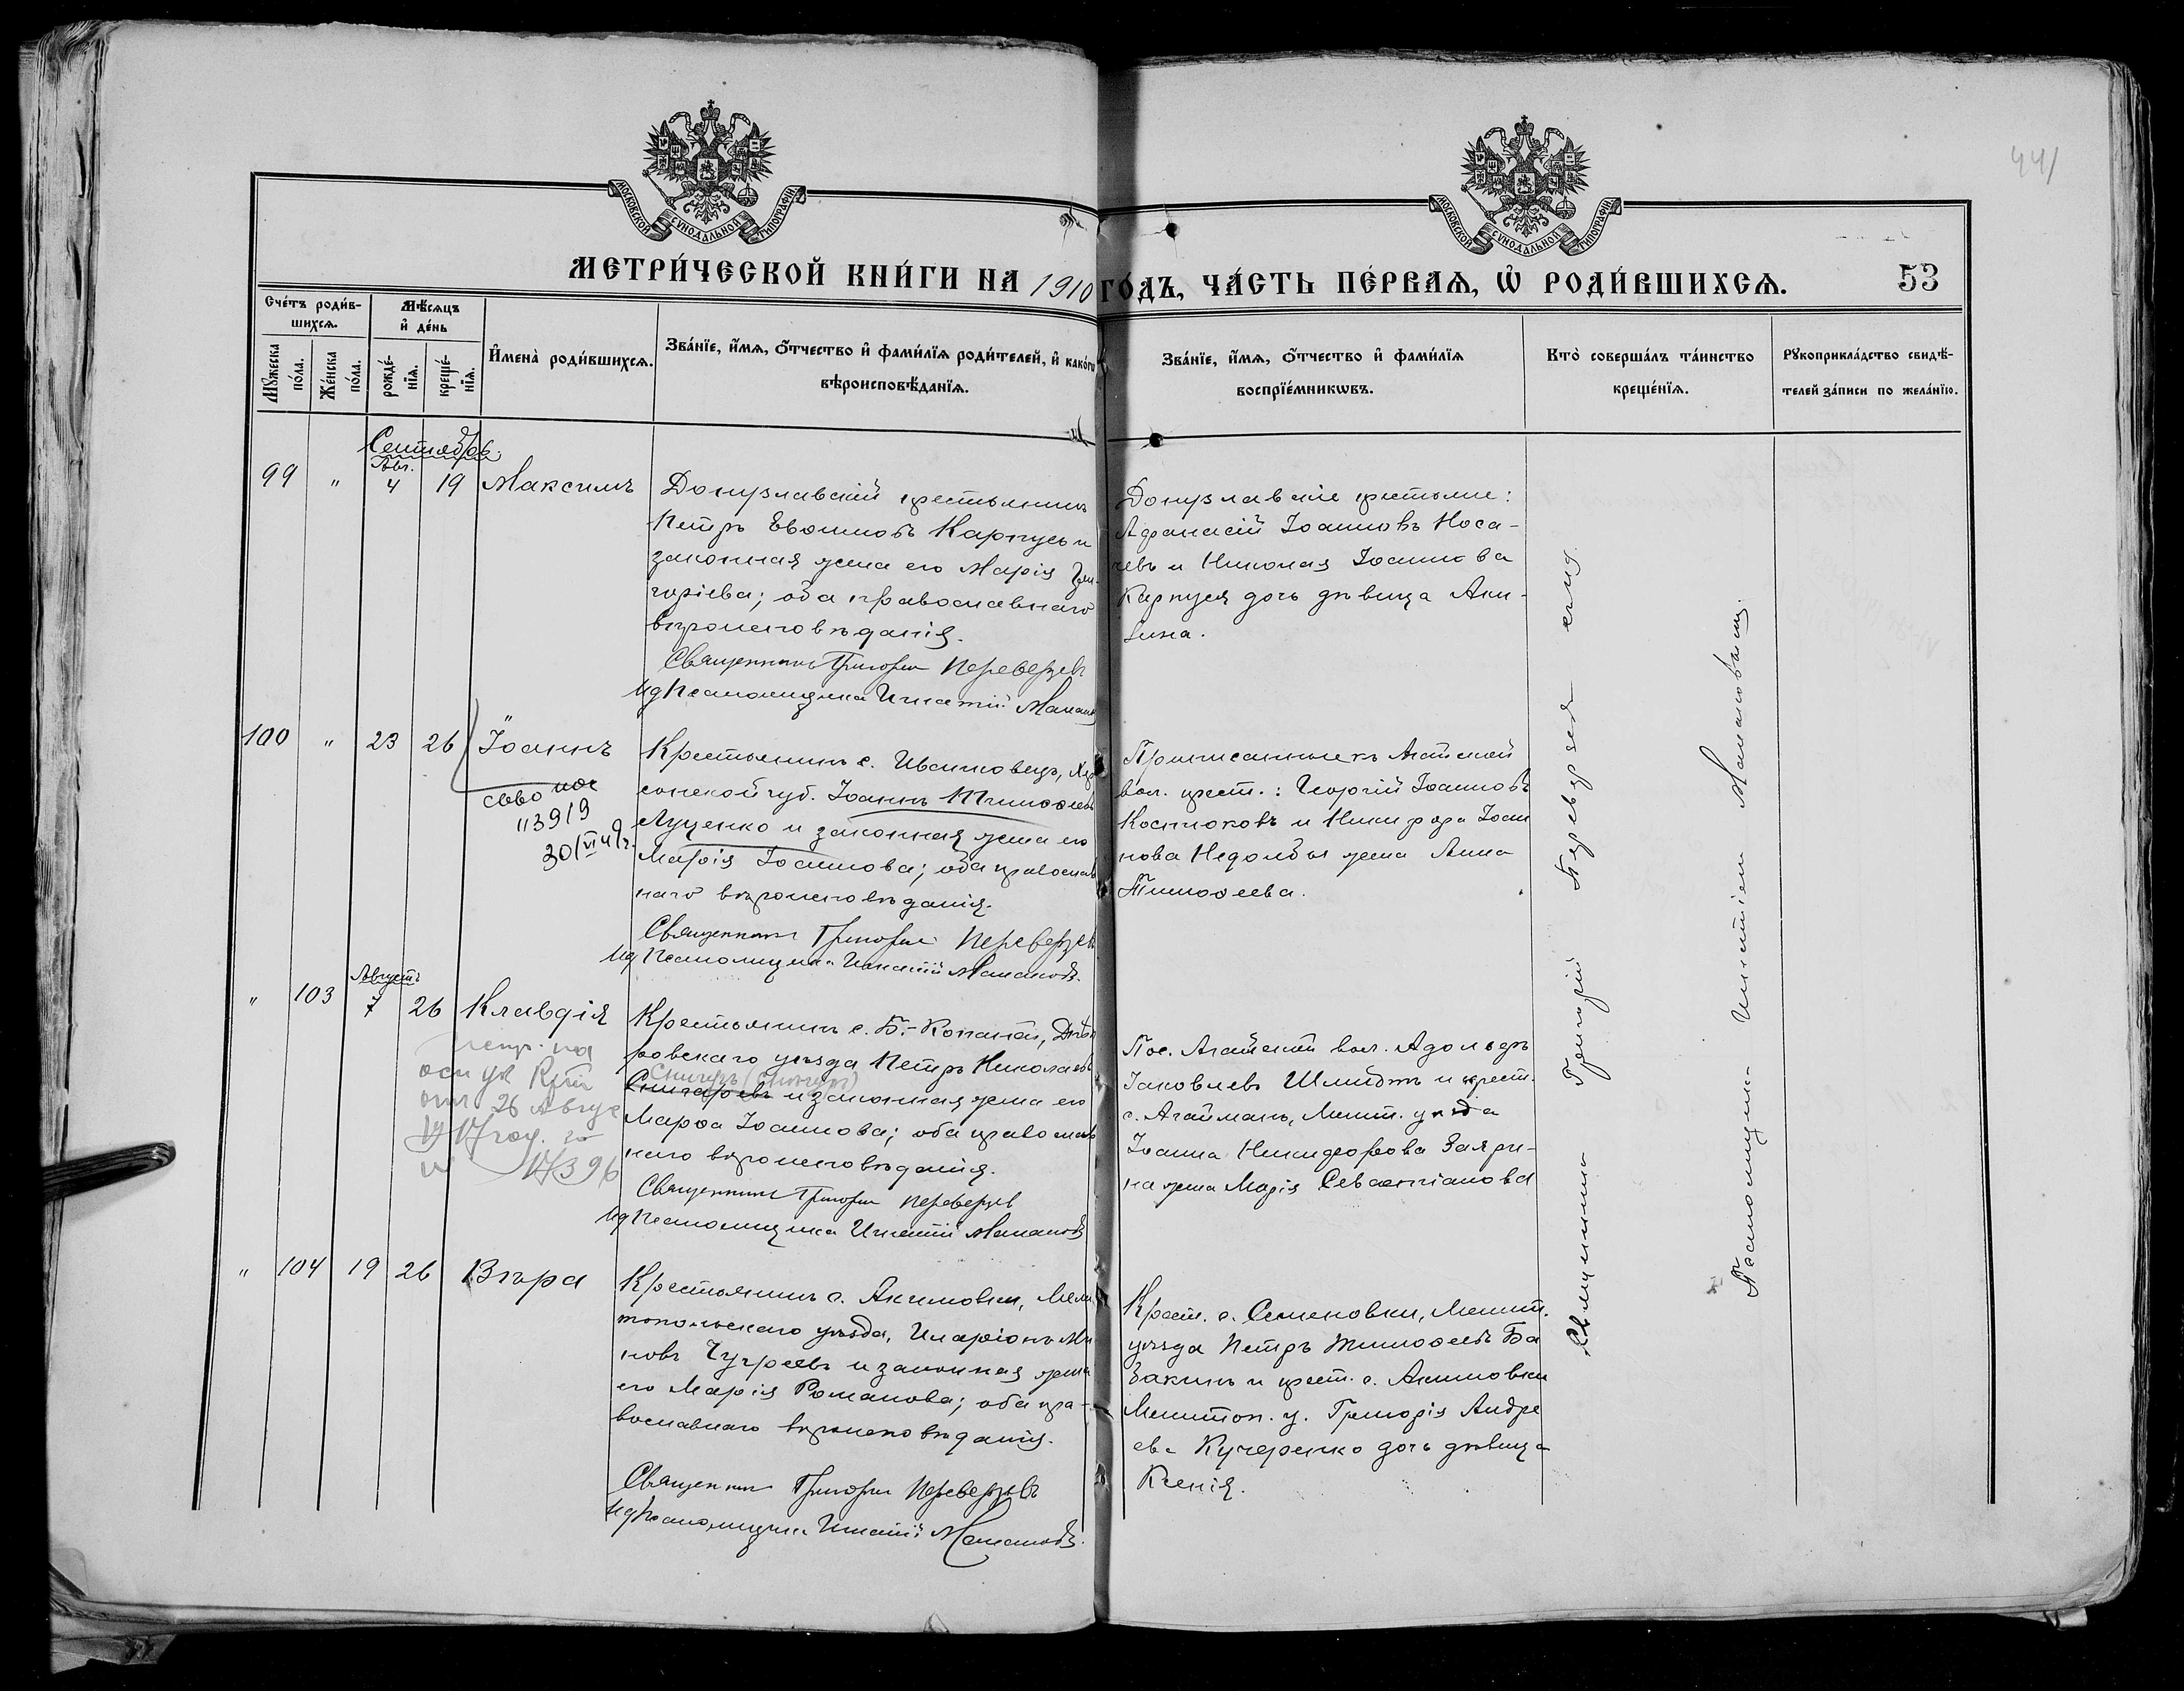 441
МОСКОВСКОЙ СѴНОДАЛЬНОЙ ТИПОГРАФІИ
МОСКОВСКОЙ СѴНОДАЛЬНОЙ ТИПОГРАФІИ
МЕТРИ́ЧЕСКОЙ КНИ́ГИ НА 1910 ГО́ДЪ, ЧА́СТЬ ПЕ́РВАѦ, Ѡ҆ РОДИ́ВШИХСѦ.
53
Сче́тъ роди́в-
шихсѧ.
Мѣ́сѧцъ
и҆ де́нь
Мꙋ́жеска
по́ла.
Же́нска
по́ла.
рожде́-
нїѧ.
креще́-
нїѧ.
И҆мена̀ роди́вшихсѧ.
Зва́нїе, и҆́мѧ, ѻ҆́тчество и҆ фами́лїѧ роди́телей, и҆ како́гѡ
вѣроисповѣ́данїѧ.
Зва́нїе, и҆́мѧ, ѻ҆́тчество и҆ фами́лїѧ
воспрїе́мникѡвъ.
Кто̀ соверша́лъ та́инство
креще́нїѧ.
Рꙋкоприкла́дство свидѣ́-
телей за́писи по жела́нїю.
Сентябрь.
Авг.
99 " 4 19 Максимъ
Донузлавскій крестьянинъ
Петръ Евѳимовъ Карпусь и
законная жена его Марія Гри-
горіева; оба православнаго
вѣроисповѣданія.
Священникъ Григорій Переверзевъ
Ид Псаломщика Игнатій Маманов
Донузлавскіе крестьяне:
Афанасій Іоанновъ Носа-
чевъ и Николая Іоаннова
Карпуся дочь дѣвица Аки-
лина.
100 " 23 26 Іоаннъ
Крестьянинъ с. Ивановки, Хер
сонской губ. Іоаннъ Тимоѳеевъ
Луценко и законная жена его
Марія Іоаннова; оба православ
наго вѣроисповѣданія.
Священникъ Григорій Переверзевъ
Ид Псаломщика Игнатій Мамановъ.
113919
30/VI 41 г.
Приписанные къ Агайской
вол. крест.: Георгій Іоанновъ
Костюковъ и Никифора Іоан
нова Недолбы жена Анна
Тимоѳеева.
Августъ
" 103 7 26 Клавдія
Крестьянинъ с. Б.-Копани, Днѣп
ровскаго уѣзда Петръ Николаевъ
Снигуръ (Снигур)
Снигаревъ и законная жена его
Марѳа Іоаннова; оба православ
наго вѣроисповѣданія.
Священникъ Григорій Переверзевъ
Ид Псаломщика Игнатій Мамановъ
26 Авгус
17396
Пос. Агайской вол. Адольфъ
Іаковлевъ Шмидтъ и крест.
с. Агайманъ, Мелит. уѣзда
Іоанна Никифорова Заяри-
на жена Марія Севастіанова
" 104 19 26 Вѣра
Крестьянинъ с. Акимовки, Мели
топольскаго уѣзда, Иларіонъ Ми
новъ Чугреевъ и законная жена
его Марія Романова; оба пра-
вославнаго вѣроисповѣданія.
Священникъ Григорій Переверзевъ
Ид Псаломщика Игнатій Мамановъ.
Крест. с. Семеновки, Мелит.
уѣзда Петръ Тимоѳеевъ Ба
закинъ и крест. с. Акимовки
Мелитоп. у. Григорія Андре
ева Кучеренко дочь дѣвица
Ксенія.
Священникъ Григорій Переверзевъ
Псаломщикъ Игнатіемъ Мамановымъ.